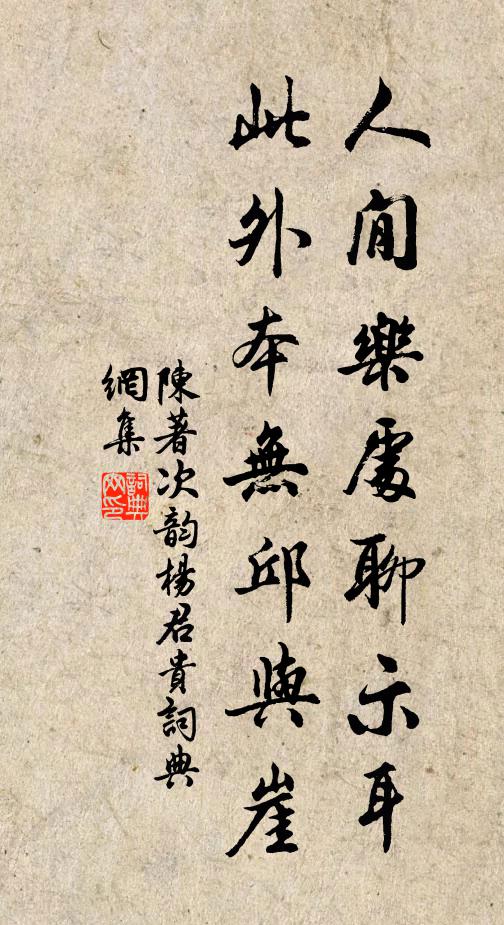 人間樂處聊示耳
此外本無邱與崖
陳著次韵楊君貴詞典
網集
詞典
网印